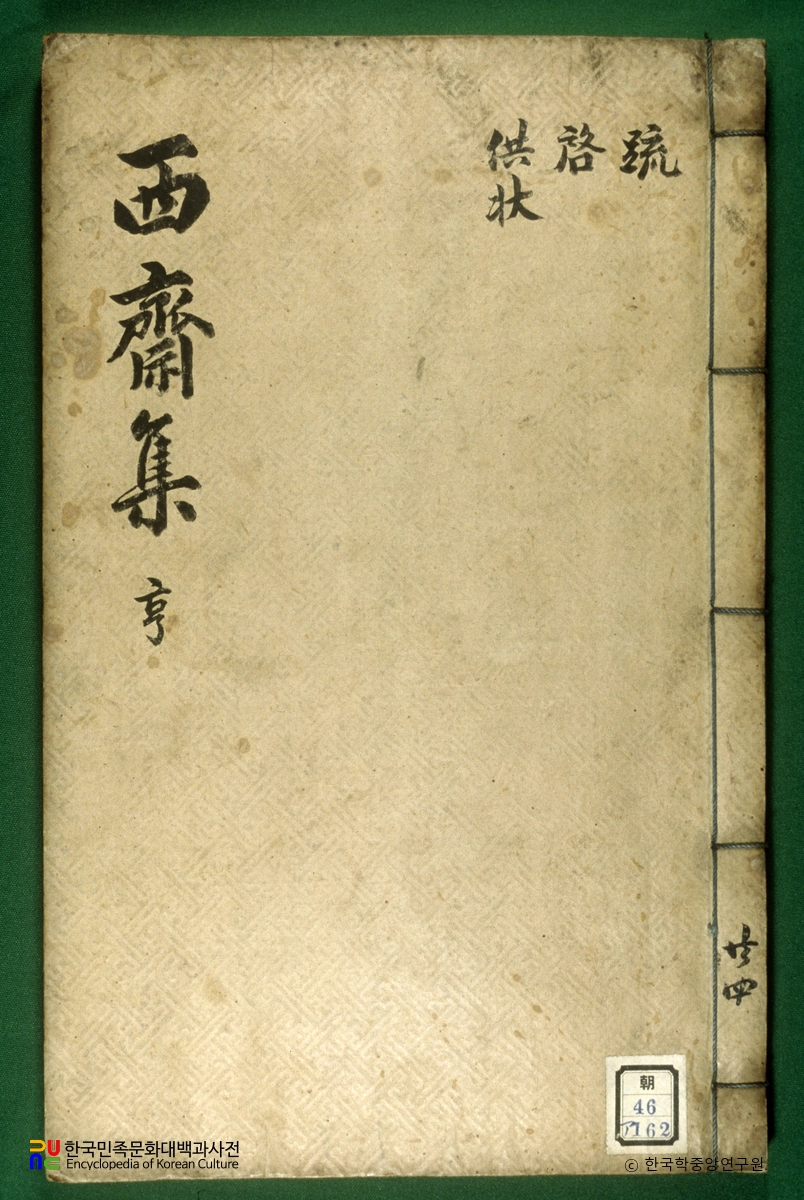 西齋集 亨
疏
啓
供狀
共四
朝
46
162
한국민족문화대백과사전
Encyclopedia of Korean Culture
ⓒ 한국학중앙연구원